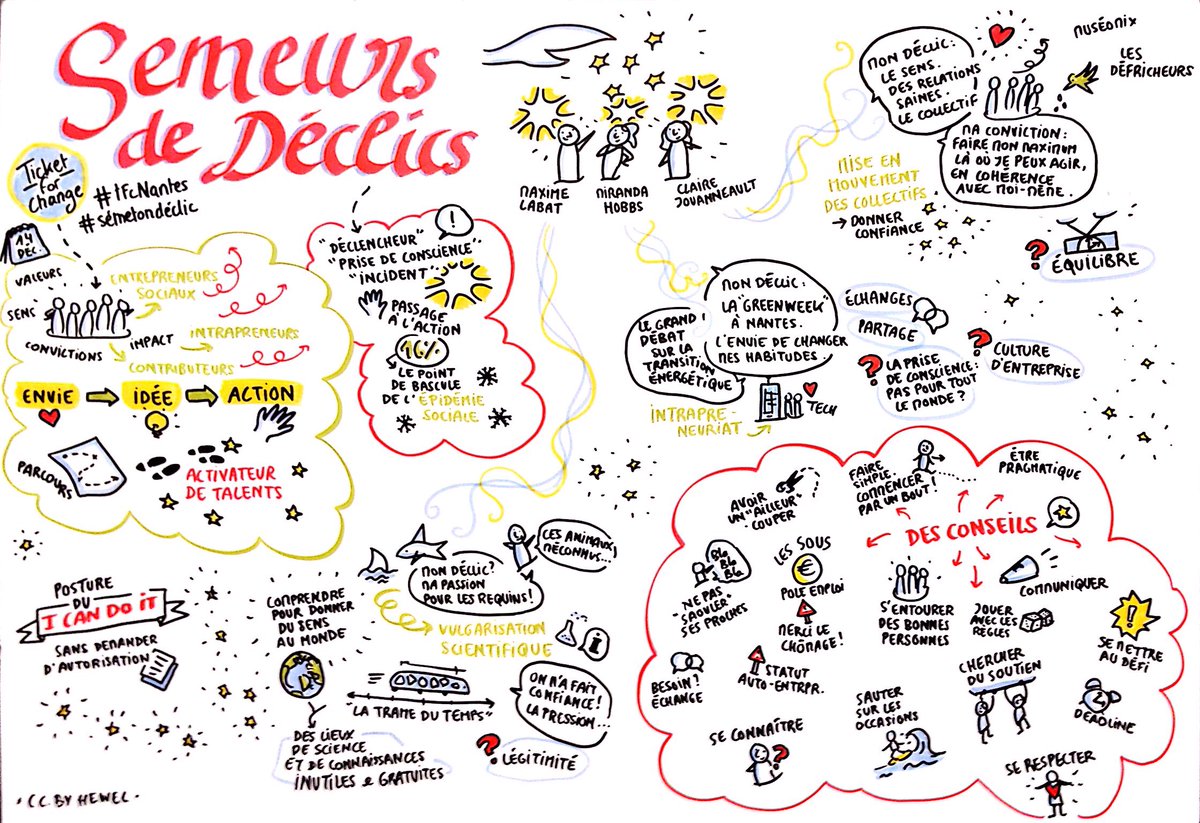 Semeurs
de Déclics
Ticket
for
change
#TFCNantes
#sèmetondéclic
14
DÉC.
VALEURS
SENS
CONVICTIONS
ENTREPRENEURS
SOCIAUX
IMPACT
INTRAPRENEURS
CONTRIBUTEURS
ENVIE
IDÉE
ACTION
PARCOURS
ACTIVATEUR
DE TALENTS
"DÉCLENCHEUR"
"PRISE DE CONSCIENCE"
"INCIDENT"
!
PASSAGE
À L'ACTION
16%
LE POINT
DE BASCULE
DE L'ÉPIDÉMIE
SOCIALE
MAXIME
LABAT
MIRANDA
HOBBS
CLAIRE
JOUANNEAULT
MON DÉCLIC:
LE SENS.
DES RELATIONS
SAINES.
LE COLLECTIF
MUSÉOMIX
LES
DÉFRICHEURS
MA CONVICTION:
FAIRE MON MAXIMUM
LÀ OÙ JE PEUX AGIR,
EN COHÉRENCE
AVEC MOI-MÊME.
MISE EN
MOUVEMENT
DES COLLECTIFS
→ DONNER
CONFIANCE
? ÉQUILIBRE
MON DÉCLIC:
LA "GREENWEEK"
À NANTES.
L'ENVIE DE CHANGER
MES HABITUDES
LE GRAND
DÉBAT
SUR LA
TRANSITION
ÉNERGÉTIQUE
INTRAPRE-
NEURIAT
TECH
ÉCHANGES
PARTAGE
? LA PRISE
DE CONSCIENCE:
PAS POUR TOUT
LE MONDE?
? CULTURE
D'ENTREPRISE
POSTURE
DU
I CAN DO IT
SANS DEMANDER
D'AUTORISATION
COMPRENDRE
POUR DONNER
DU SENS
AU MONDE
MON DÉCLIC?
MA PASSION
POUR LES REQUINS!
CES ANIMAUX
MÉCONNUS...
VULGARISATION
SCIENTIFIQUE
i
"LA TRAME DU TEMPS"
ON M'A FAIT
CONFIANCE!
LA PRESSION...
DES LIEUX
DE SCIENCE
ET DE CONNAISSANCES
INUTILES & GRATUITES
? LÉGITIMITÉ
DES CONSEILS
AVOIR
UN "AILLEUR"
COUPER
FAIRE
SIMPLE
COMMENCER
PAR UN BOUT!
ÊTRE
PRAGMATIQUE
BLA
BLA
BLA
NE PAS
"SAOULER"
SES PROCHES
LES SOUS
€
POLE EMPLOI
MERCI LE
CHÔMAGE!
STATUT
AUTO-ENTRPR.
BESOIN?
ÉCHANGE
S'ENTOURER
DES BONNES
PERSONNES
JOUER
AVEC LES
RÈGLES
COMMUNIQUER
!
SE METTRE
AU DÉFI
CHERCHER
DU SOUTIEN
DEADLINE
SAUTER
SUR LES
OCCASIONS
SE CONNAÎTRE
?
SE RESPECTER
• CC. BY HEWEL •